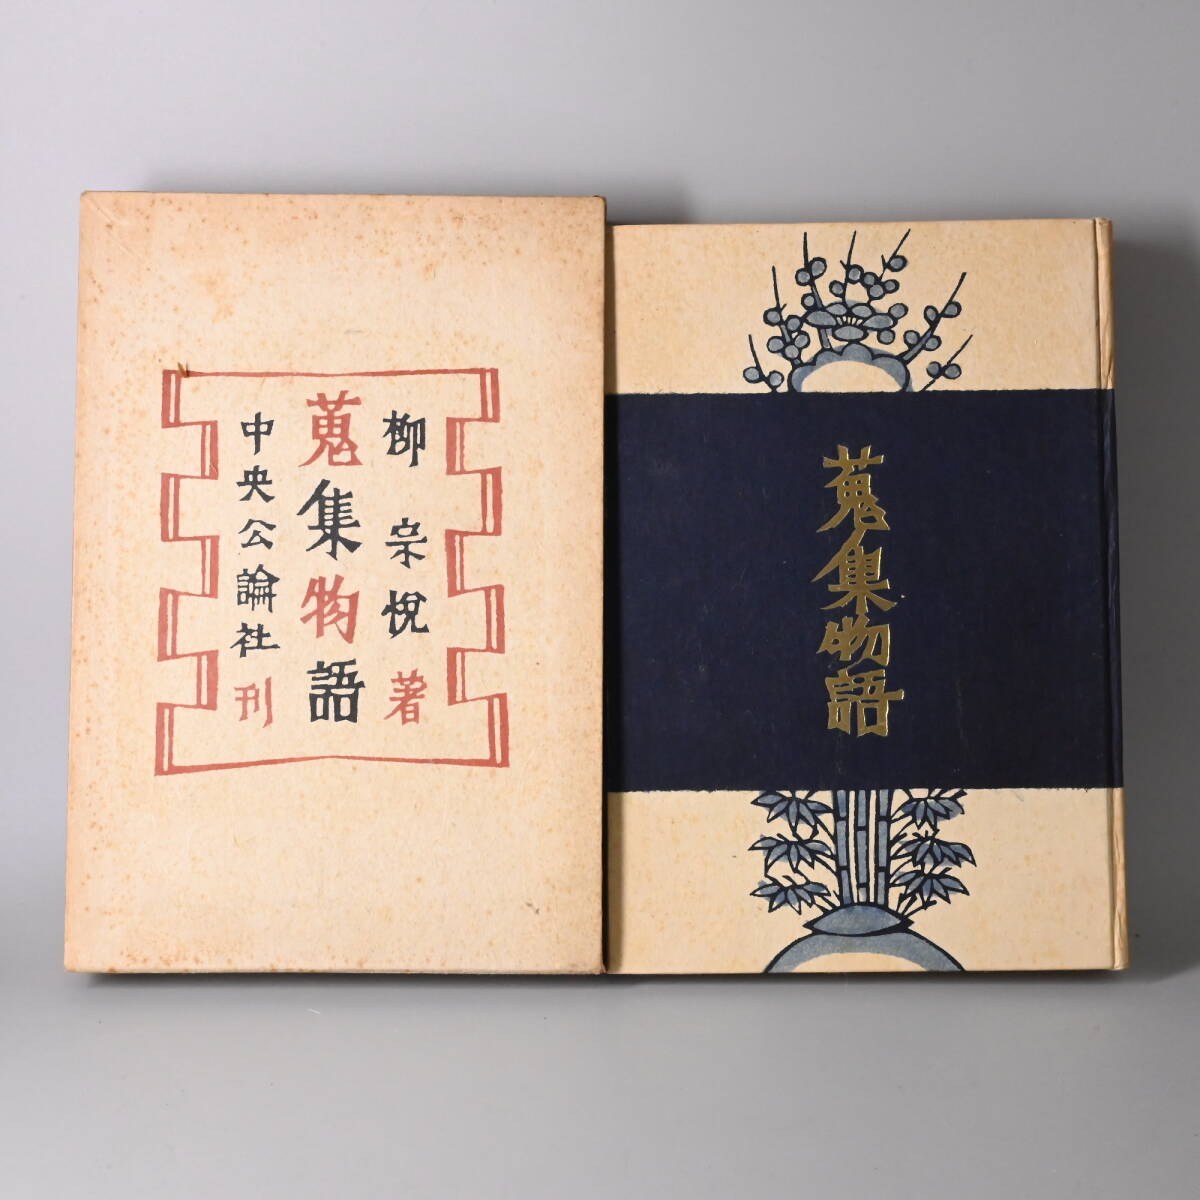 柳宗悦著
蒐集物語
中央公論社刊
蒐集物語